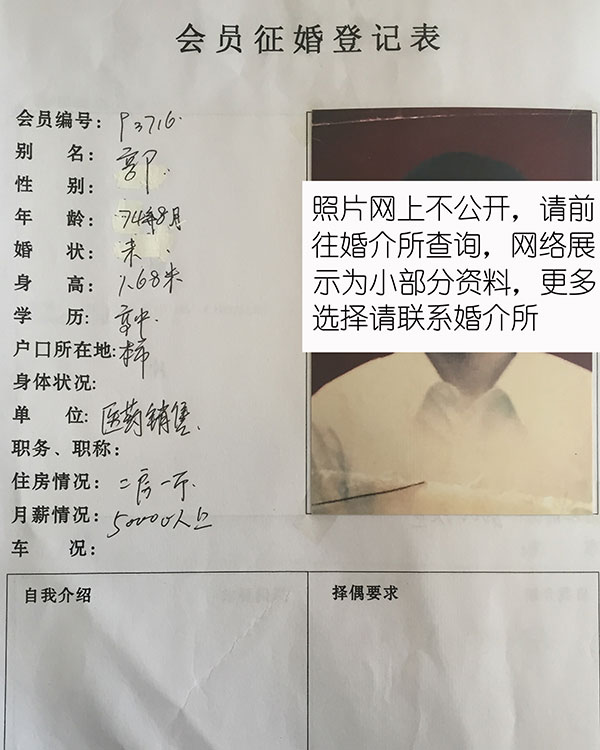 会员征婚登记表
会员编号：P3716.
别 名：郭.
性 别：
年 龄：74年8月
婚 状：未.
身 高：1.68米
学 历：高中.
户口所在地：本市
身体状况：
单 位：医药销售.
职务、职称：
住房情况：二房一厅.
月薪情况：以上
车 况：
照片网上不公开，请前
往婚介所查询，网络展
示为小部分资料，更多
选择请联系婚介所
自我介绍
择偶要求